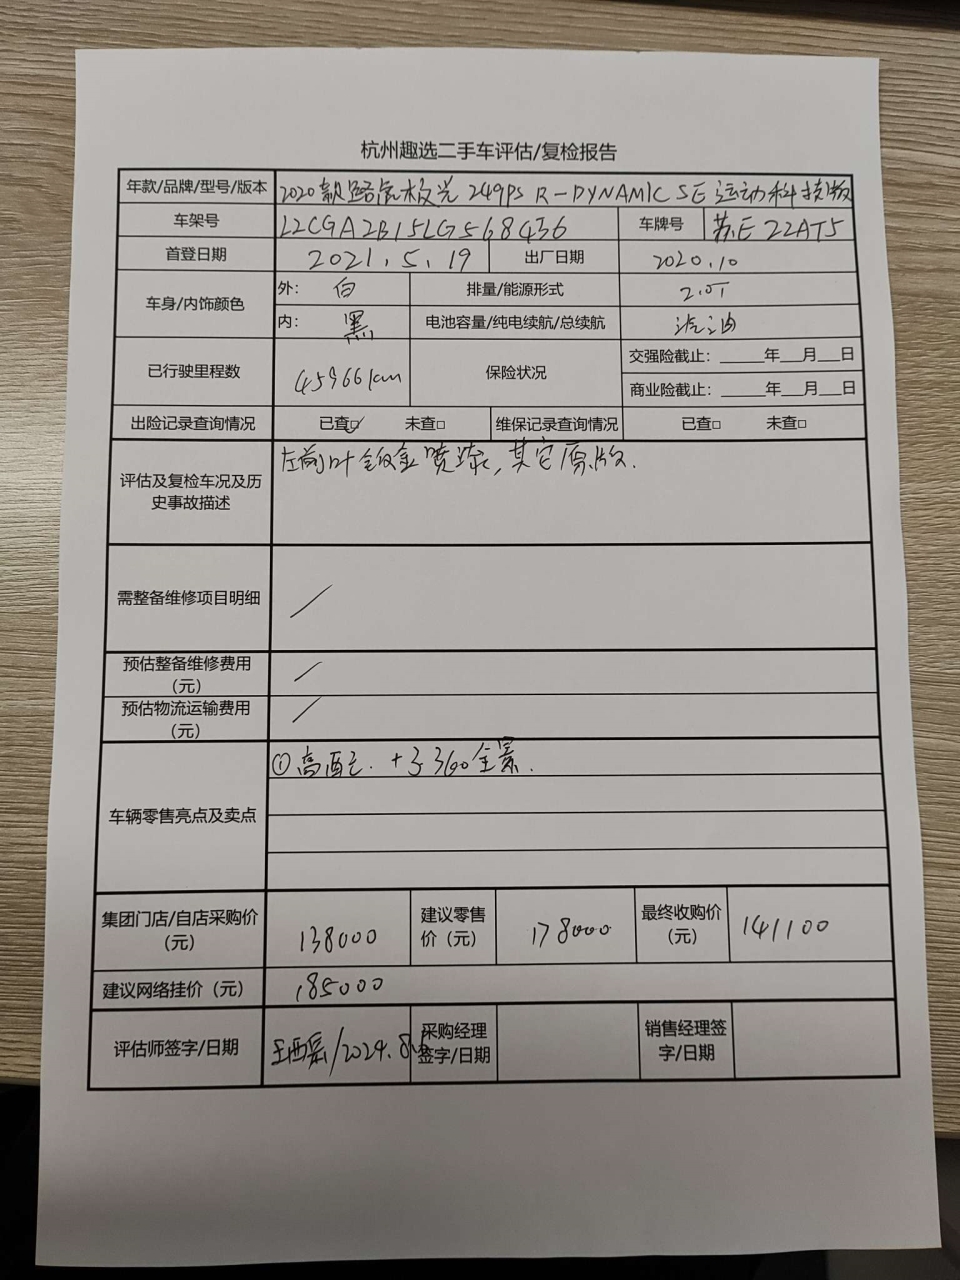 杭州趣选二手车评估/复检报告
年款/品牌/型号/版本 2020款路虎极光 249PS R-DYNAMIC SE 运动科技版
车架号 L2CGA2B15LG568436 车牌号 苏E 22AT5
首登日期 2021.5.19 出厂日期 2020.10
车身/内饰颜色 外: 白 排量/能源形式 2.0T
内: 黑 电池容量/纯电续航/总续航 汽油
已行驶里程数 45966km 保险状况 交强险截止: 年 月 日
商业险截止: 年 月 日
出险记录查询情况 已查☑ 未查□ 维保记录查询情况 已查□ 未查□
评估及复检车况及历史事故描述 左前叶钣金喷漆,其它原版.
需整备维修项目明细 /
预估整备维修费用(元) /
预估物流运输费用(元) /
车辆零售亮点及卖点 ①高配. 360全景.
集团门店/自店采购价(元) 138000 建议零售价(元) 178000 最终收购价(元) 141100
建议网络挂价(元) 185000
评估师签字/日期 /2024.8. 采购经理签字/日期 销售经理签字/日期